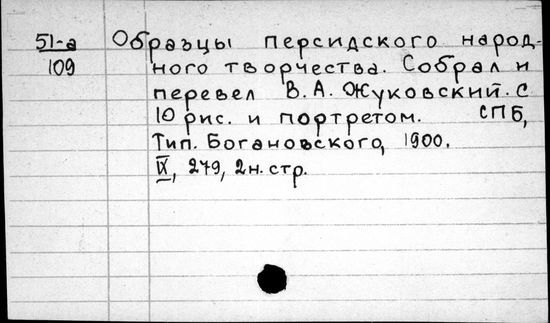 51-а Образцы персидского народ-
109 ного творчества. Собрал и
перевел В.А. Жуковский. С
10 рис. и портретом. СПБ,
Тип. Богановского, 1900.
IX, 279, 2 н. стр.